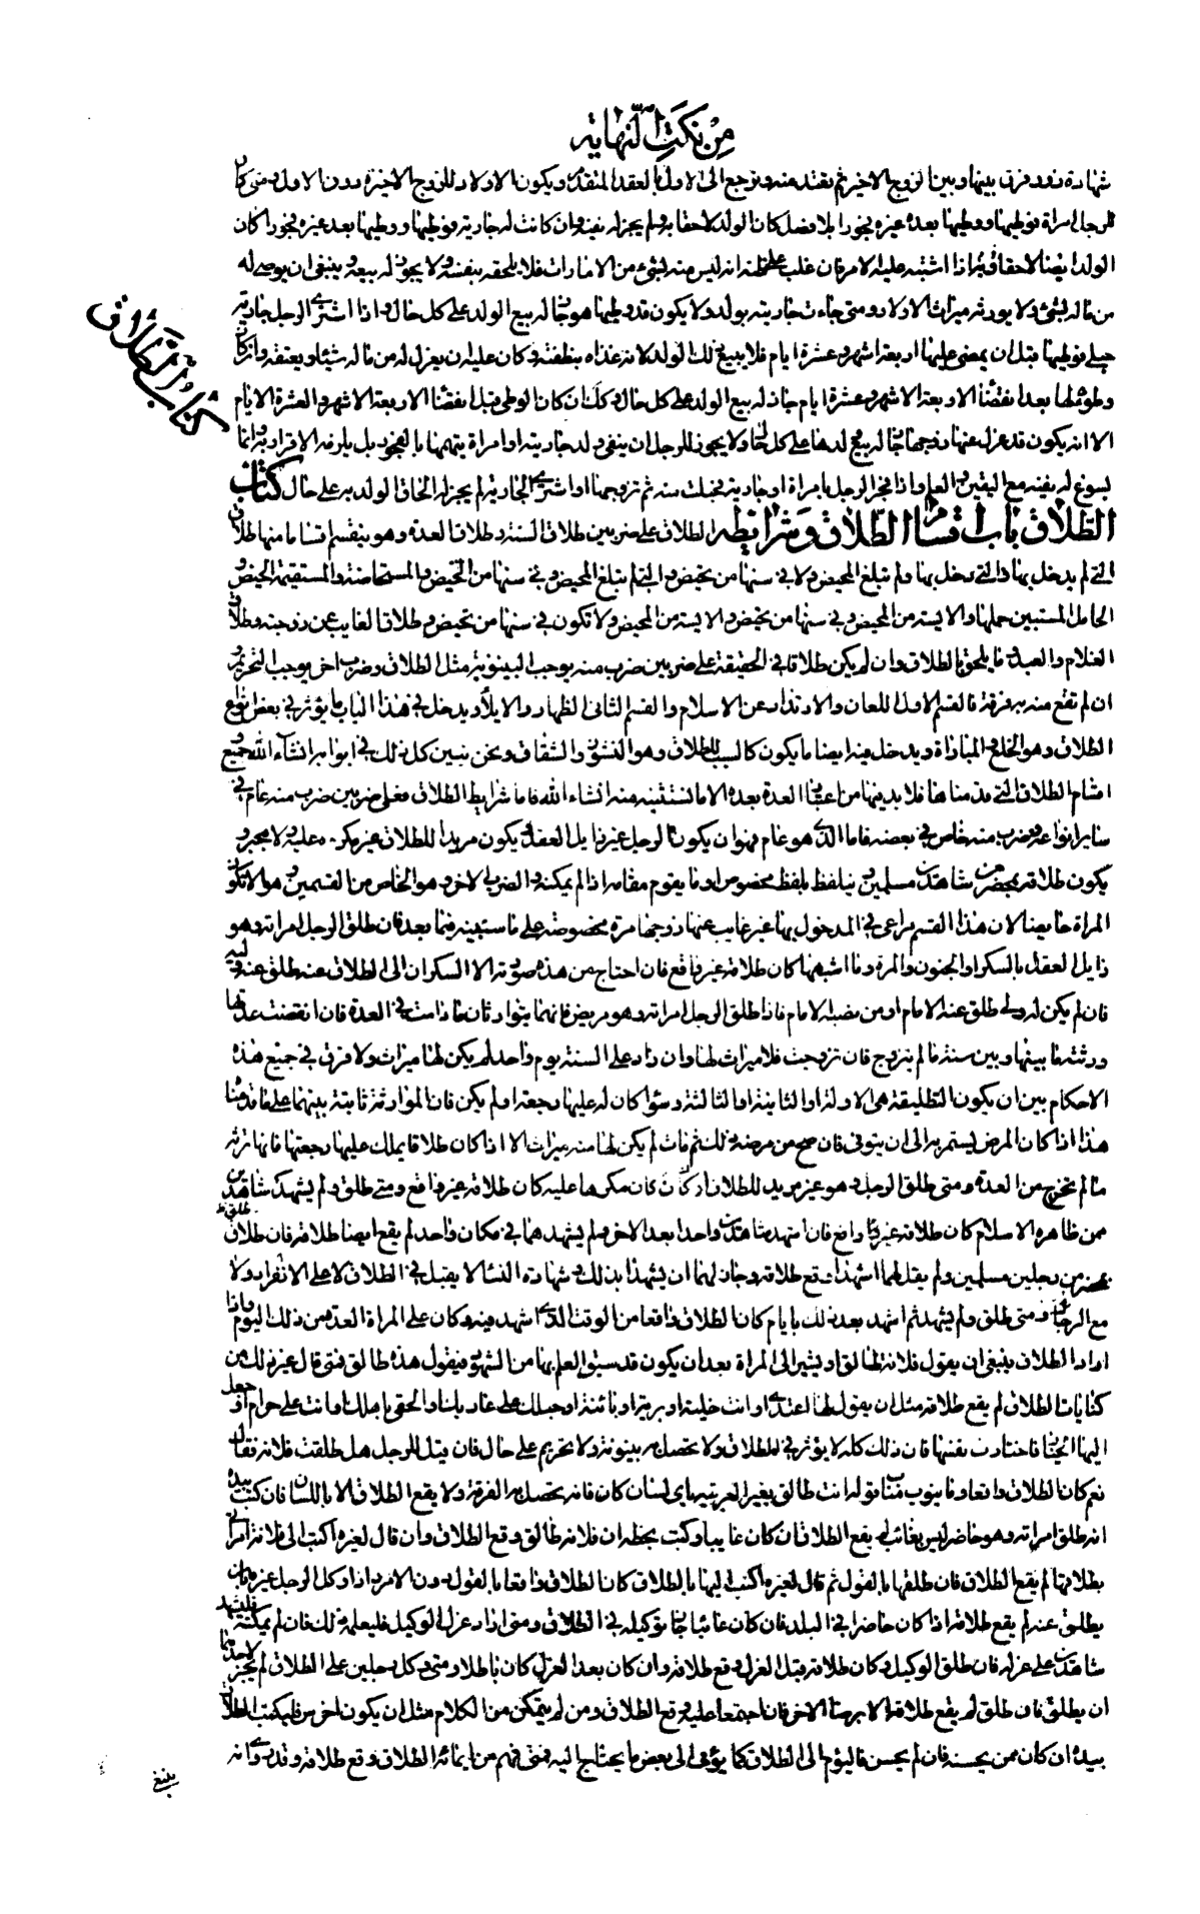 مِنْ نكَتِ النّهاية
شهادة زور فرق بينها وبين الزوج الاخير ثم تعتد منه وترجع الى الاول بالعقد المتقدم ويكون الاولاد للزوج الاخير دون الاول ومتى كان
للرجل امراة فوطيها ووطيها بعده غيره فجورا بلا فصل كان الولد لاحقا به ولم يجز له نفيه وان كانت له جارية فوطيها ووطيها بعده غيره فجورا كان
الولد ايضا لاحقا به فاذا اشتبه عليه الامر فان غلب على ظنه انه ليس منه بشيء من الامارات فلا يلحقه بنفسه ولا يجوز له بيعه وينبغى ان يوصى له
من ماله بشئ ولا يورثه ميراث الاولاد ومتى جاءت جاريته بولد ولا يكون قد وطيها هو جاز له بيع الولد على كل حال واذا اشترى الرجل جارية
حبلى فوطيها قبل ان يمضى عليها اربعة اشهر وعشرة ايام فلا يبيع ذلك الولد لانه غذاه بنطفته وكان عليه ان يعزل له من ماله شيئا ويعتقه وان كان
وطؤه لها بعد انقضاء الاربعة الاشهر وعشرة ايام جاز له بيع الولد على كل حال وكذلك ان كان الوطى قبل انقضاء الاربعة الاشهر والعشرة الايام
الا انه يكون قد عزل عنها جاز له بيع ولدها على كل حال ولا يجوز للرجل ان ينفى ولد جاريته او امراة يتهمها بالفجور بل يلزمه الاقرار به وانما
يسوغ له نفيه مع اليقين والعلم واذا فجر الرجل بامراة او جارية فحبلت منه ثم تزوجها او اشترى الجارية لم يجز له الحاق الولد به على حال كتاب
الطلاق باب اقسام الطلاق وشرائطه الطلاق على ضربين طلاق السنة وطلاق العدة وهو ينقسم اقساما منها طلاق
التى لم يدخل بها والتى دخل بها ولم تبلغ المحيض ولا فى سنها من تحيض والتى لم تبلغ المحيض وفى سنها من تحيض والمستحاضة والمستقيمة الحيض
الحامل المستبين حملها والايسة من المحيض وفى سنها من تحيض والايسة من المحيض ولا تكون فى سنها من تحيض وطلاق الغايب عن زوجته وطلاق
الغلام والعبد وما يلحق بالطلاق وان لم يكن طلاقا فى الحقيقة على ضربين ضرب منه يوجب البينونة مثل الطلاق وضرب اخر يوجب التحريم و
ان لم تقع منه به فرقة فالقسم الاول اللعان والارتداد عن الاسلام والقسم الثانى الظهار والايلاء ويدخل فى هذا الباب ما يؤثر فى بعض انواع
الطلاق وهو الخلع والمباراة ويدخل فيه ايضا ما يكون كالسبب للطلاق وهو النشوز والشقاق ونحن نبين كل ذلك فى ابوابه انشاء الله وجميع
اقسام الطلاق التى قدمناها فلا بد فيها من اعتبار العدة بعده الا ما نستثنيه منه انشاء الله فاما شرايط الطلاق فعلى ضربين ضرب منه عام فى
ساير انواعه وضرب منه خاص فى بعضه فاما الذى هو عام فهو ان يكون الرجل غير زايل العقل ويكون مريدا للطلاق غير مكره عليه ولا مجبر و
يكون طلاقه بمحضر من شاهدين مسلمين ويتلفظ بلفظ مخصوص او ما يقوم مقامه اذا لم يمكنه والضرب الاخر وهو الخاص من القسمين هو الا تكون
المراة حايضا لان هذا القسم مراعى فى المدخول بها غير غايب عنها زوجها مدة مخصوصة على ما سنبينه فيما بعد فان طلق الرجل امراته وهو
زايل العقل بالسكر او الجنون والمرة وما اشبهها كان طلاقه غير واقع فان احتاج من هذه صورته الا السكران الى الطلاق عنه طلق عنه وليه
فان لم يكن له ولى طلق عنه الامام او من نصبه الامام فاذا طلق الرجل امراته وهو مريض فانهما يتوارثان ما دامت فى العدة فان انقضت عدتها
ورثته ما بينها وبين سنة ما لم يتزوج فان تزوجت فلا ميراث لها وان زاد على السنة يوم واحد لم يكن لها ميراث ولا فرق فى جميع هذه
الاحكام بين ان يكون التطليقة هى الاولة او الثانية او الثالثة وسواء كان له عليها رجعة او لم يكن فان الموارثة ثابتة بينهما على ما قدمناه
هذا اذا كان المرض يستمر به الى ان يتوفى فان صح من مرضه ذلك ثم مات لم يكن لها منه ميراث الا اذا كان طلاقا يملك عليها رجعتها فانها ترثه
ما لم تخرج من العدة ومتى طلق الرجل وهو غير مريد للطلاق او كان مكرها عليه كان طلاقه غير واقع ومتى طلق ولم يشهد شاهدين
ممن ظاهره الاسلام كان طلاقه غير واقع فان اشهد شاهدين واحدا بعد الاخر ولم يشهدهما فى مكان واحد لم يقع ايضا طلاقه فان طلق
بمحضر من رجلين مسلمين ولم يقل لهما اشهدا وقع طلاقه وجاز لهما ان يشهدا بذلك وشهادة النساء لا يقبل فى الطلاق لا على الانفراد ولا
مع الرجال ومتى طلق ولم يشهد ثم اشهد بعد ذلك بايام كان الطلاق واقعا من الوقت الذى اشهد فيه وكان على المراة العدة من ذلك اليوم واذا
اراد الطلاق ينبغى ان يقول فلانة طالق او يشير الى المراة بعد ان يكون قد سبق العلم بها من الشهود فيقول هذه طالق فمتى قال غير ذلك من
كنايات الطلاق لم يقع طلاقه مثل ان يقول لها اعتدى او انت خلية او برية او بائنة او حبلك على غاربك او الحقى باهلك او انت على حرام او جعل
اليها الخيار فاختارت نفسها فان ذلك كله لا يؤثر فى الطلاق ولا تحصل به بينونة ولا تحريم على حال فان قيل للرجل هل طلقت فلانة فقال
نعم كان الطلاق واقعا وما ينوب مناب قوله انت طالق بغير العربية باى لسان كان فانه تحصل به الفرقة ولا يقع الطلاق الا باللسان فان كتب بيده
انه طلق امراته وهو حاضر ليس بغائب لم يقع الطلاق وان كان غايبا وكتب بخطه ان فلانة طالق وقع الطلاق وان قال لغيره اكتب الى فلانة امراتى
بطلاقها لم يقع الطلاق فان طلقها بالقول ثم قال لغيره اكتب اليها بالطلاق كان الطلاق واقعا بالقول دون الامر واذا وكل الرجل غيره بان
يطلق عنه لم يقع طلاقه اذا كان حاضرا فى البلد فان كان غائبا جاز توكيله فى الطلاق ومتى اراد عزل الوكيل فليعلمه ذلك فان لم يمكنه فليشهد
شاهدين على عزله فان طلق الوكيل وكان طلاقه قبل العزل وقع طلاقه وان كان بعد العزل كان باطلا ومتى وكل رجلين على الطلاق لم يجز لاحدهما
ان يطلق فان طلق لم يقع طلاقه الا برضا الاخر فان اجتمعا عليه وقع الطلاق ومن لم يتمكن من الكلام مثل ان يكون اخرس فليكتب الطلاق
بيده ان كان ممن يحسنه فان لم يحسن فاليوم الى الطلاق كما يؤمى الى بعض ما يحتاج اليه فمتى فهم من ايمائه الطلاق وقع طلاقه وقد روى انه
كتاب الطلاق
ينبغى